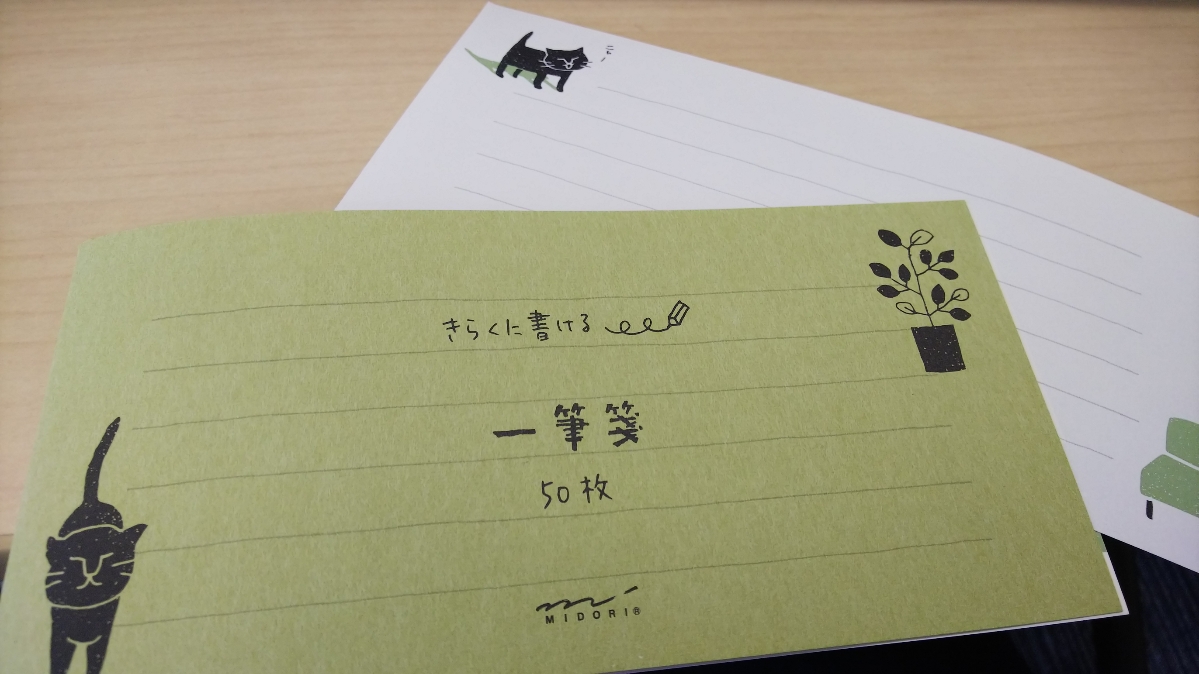 きらくに書ける
一筆箋
50枚
MIDORI®